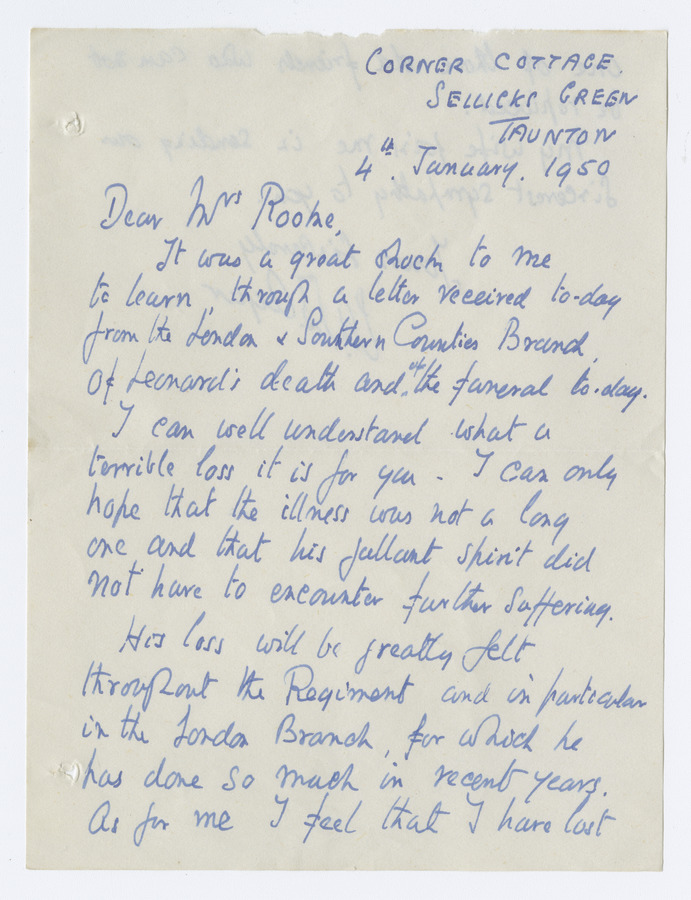 CORNER COTTAGE.
SELLICKS GREEN
TAUNTON
4th. January. 1950
Dear Mrs Rooke,
It was a great shock to me
to learn, through a letter received to-day
from the London & Southern Counties Branch,
of Leonard's death and of the funeral to-day.
I can well understand what a
terrible loss it is for you - I can only
hope that the illness was not a long
one and that his gallant spirit did
not have to encounter further suffering.
His loss will be greatly felt
throughout the Regiment and in particular
in the London Branch, for which he
has done so much in recent years.
As for me I feel that I have lost